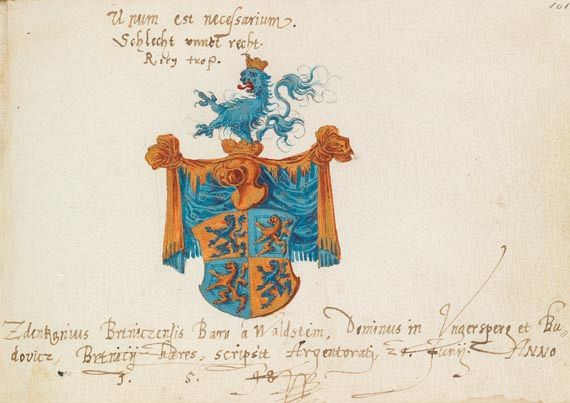 101
Unum est necessarium.
Schlecht unndt recht.
trop.
Zdenkonius Brtniczensis Baro à Waldstein, Dominus in Ungersperg et Bu-
dovicz, haeres, scripsit Argentorati, 21 Junij. ANNO
1. 5.